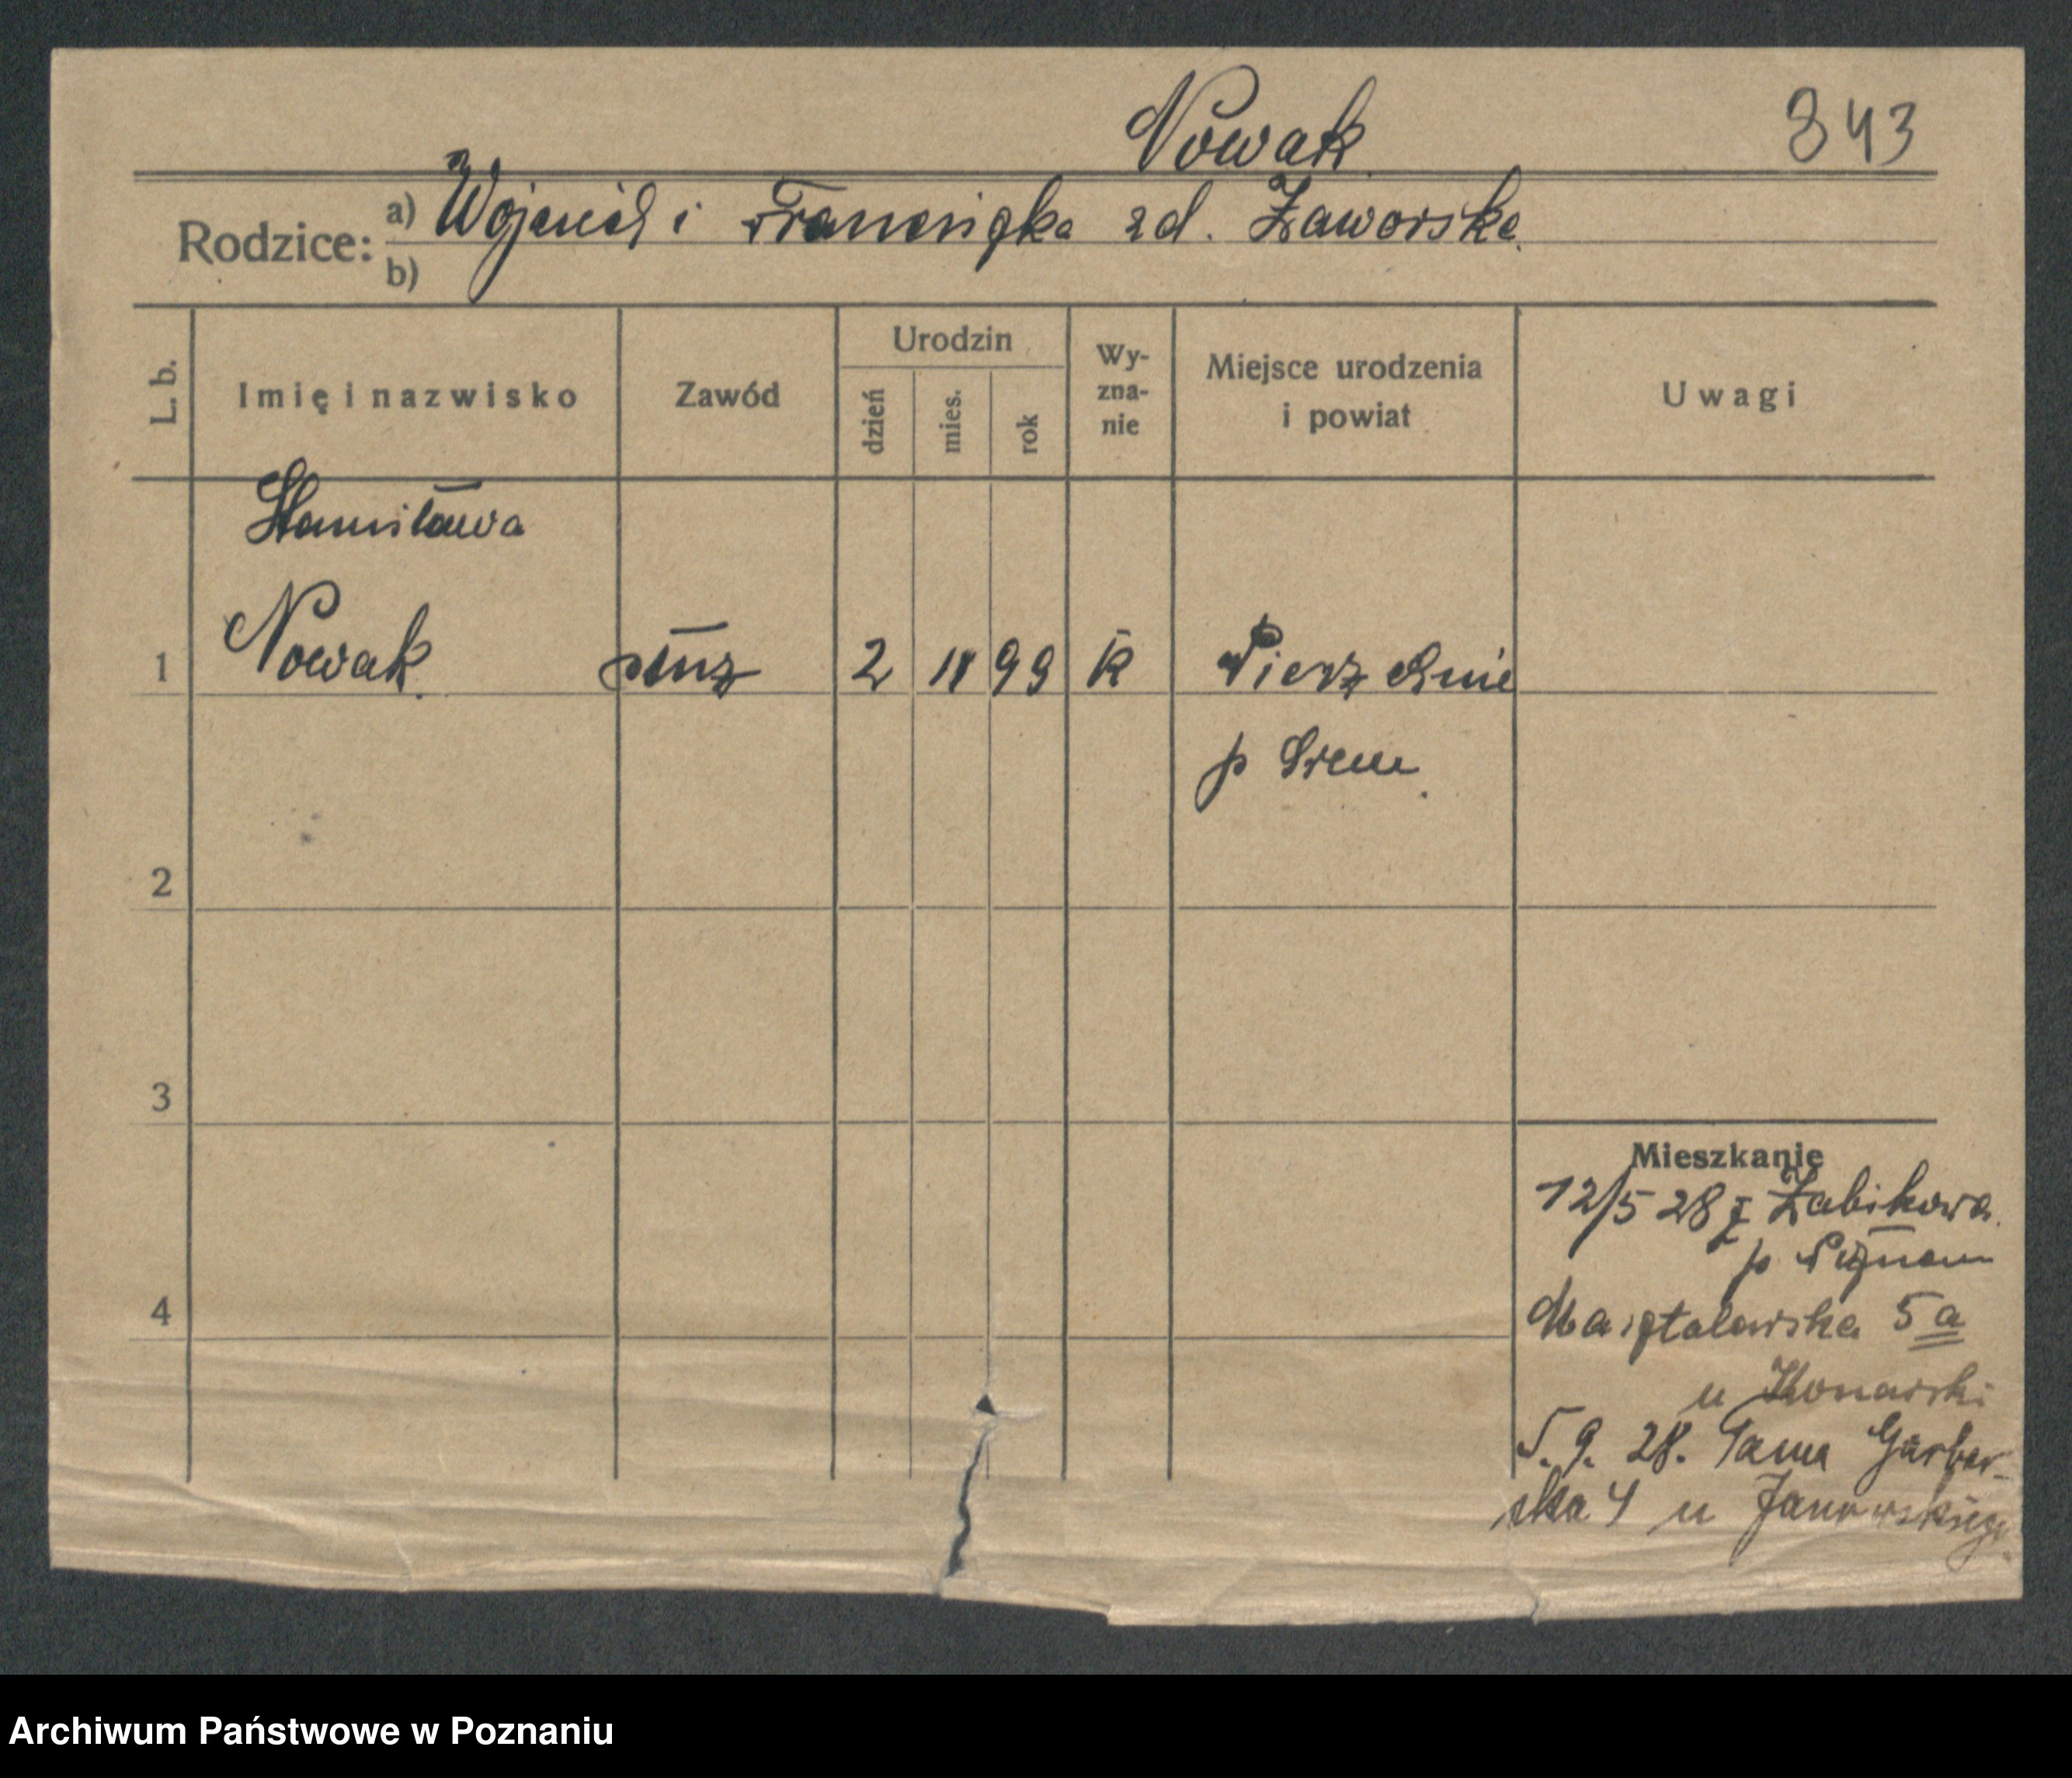 Nowak
843
Rodzice: a) Wojciech i Franciszka zd. Zaworska
b)
L. b.
Imię i nazwisko
Zawód
Urodzin
dzień
mies.
rok
Wy-
zna-
nie
Miejsce urodzenia
i powiat
Uwagi
Stanisława
1 Nowak służ 2 11 99 k Pierzchnie
p Śrem
2
3
4
Mieszkanie
12/5 28 z Żabikowa
p Poznań
Masztalarska 5a
u Konarski
5. 9. 28. Tama Garbar-
ska 4 u Janowskiego
Archiwum Państwowe w Poznaniu